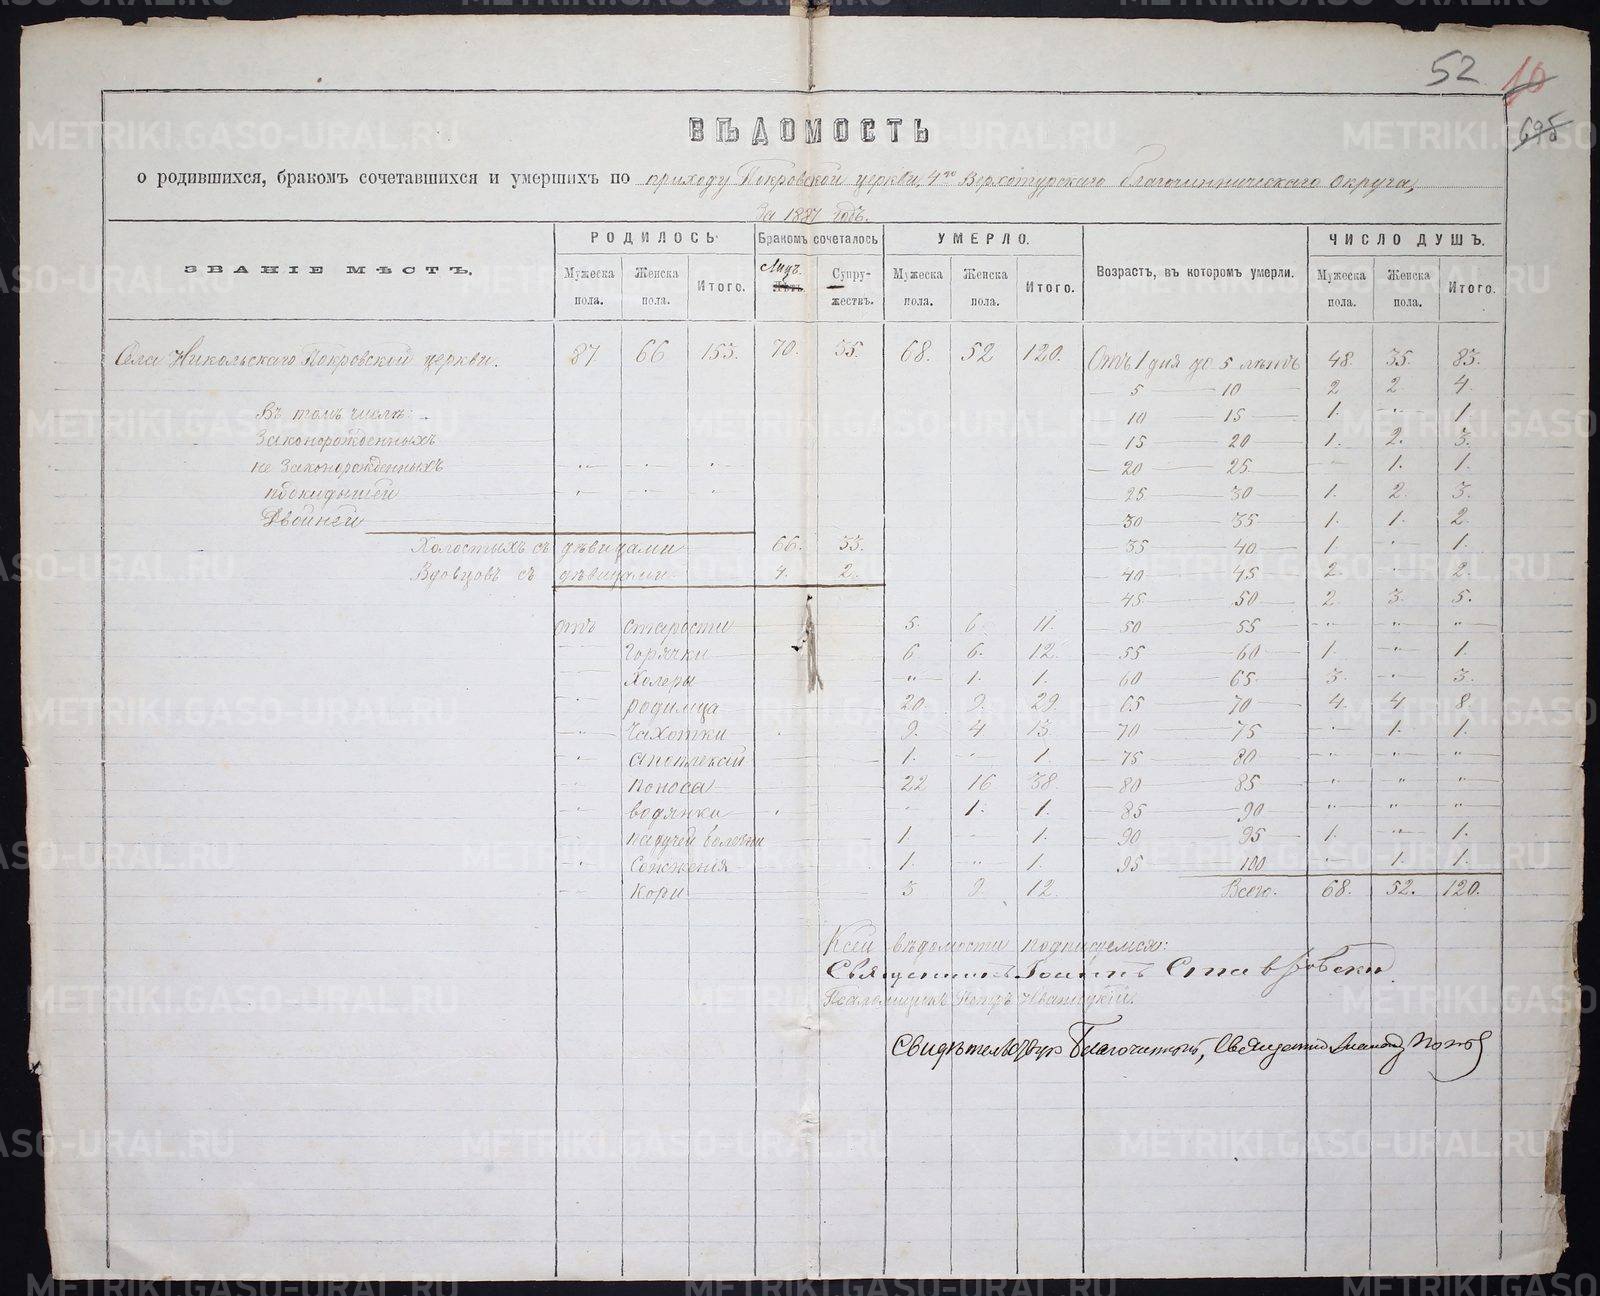 52 10
695
ВѢДОМОСТЬ
о родившихся, бракомъ сочетавшихся и умершихъ по приходу Покровской церкви, 4го Верхотурскаго благочинническаго округа,
За 1887 годъ.
ЗВАНІЕ МѢСТЪ. РОДИЛОСЬ Бракомъ сочеталось УМЕРЛО. Возрастъ, въ которомъ умерли. ЧИСЛО ДУШЪ.
Мужеска пола. Женска пола. Итого. Лицъ. Супружествъ. Мужеска пола. Женска пола. Итого. Мужеска пола. Женска пола. Итого.
Села Никольскаго Покровской церкви. 87 66 153. 70. 35. 68. 52 120. Отъ 1 дня до 5 лѣтъ 48. 35. 83.
5 — 10 2 2 4.
Въ томъ числѣ: 10 15 1. " 1.
Законорожденныхъ 15 20 1. 2. 3.
не Законорожденныхъ " " " 20 — 25 " 1. 1.
подкидышей " " " 25 — 30 1. 2. 3.
Двойней 30 — 35 1. 1. 2.
Холостыхъ съ дѣвицами 66. 33. 35 40 1. " 1.
Вдовцовъ съ дѣвицами 4. 2. 40 45 2. " 2.
45 50 2. 3. 5.
отъ старости 5. 6. 11. 50 55 " " "
" Горячки 6 6. 12. 55 60 1. " 1.
" Холеры " 1. 1. 60 65 3. " 3.
" родимца 20. 9. 29. 65 70 4. 4 8.
" Чахотки 9. 4 13. 70 75 " 1. 1.
" апоплексіи 1. " 1. 75 80 " " "
" поноса 22 16 38. 80 85 " " "
" водянки " 1. 1. 85 90 " " "
" падучей болезни 1. 1. 90 95 1. " 1.
" Сожженія 1. " 1. 95 100 " 1. 1.
" Кори 3 9. 12. Всего. 68. 52. 120.
К сей вѣдомости подписуемся:
Священникъ Іоаннъ Ставровскій
Псаломщикъ Петръ Иваницкій.
Свидѣтельствую Благочинный, Священникъ Попов